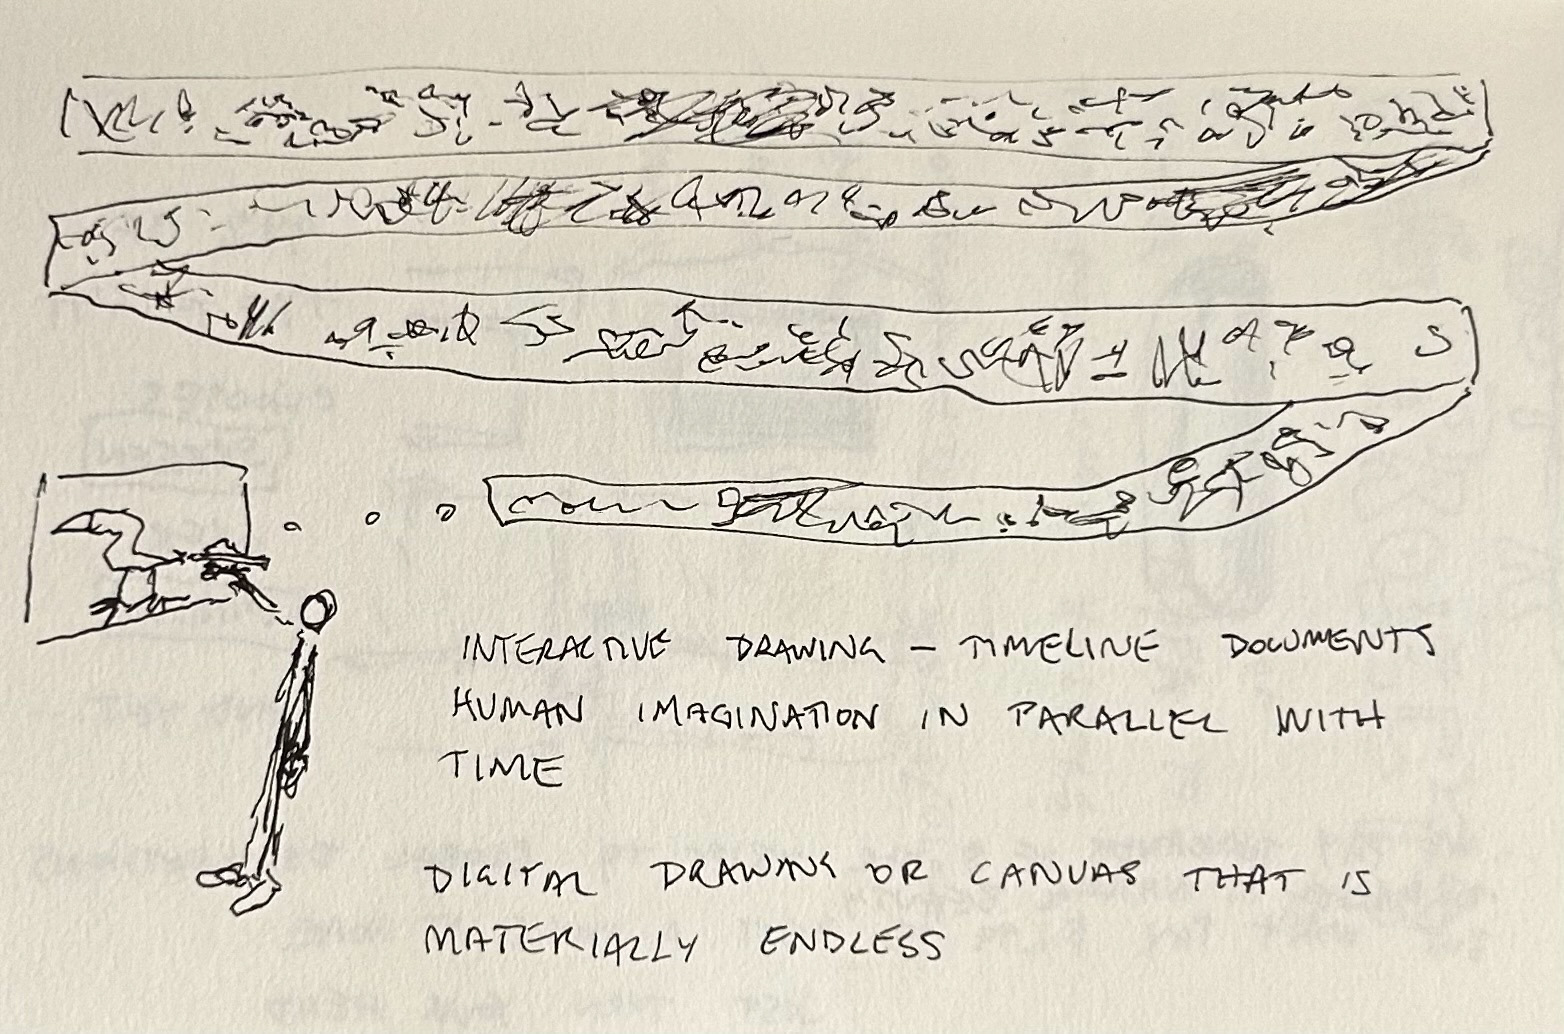 INTERACTIVE DRAWING – TIMELINE DOCUMENTS
HUMAN IMAGINATION IN PARALLEL WITH
TIME
DIGITAL DRAWING OR CANVAS THAT IS
MATERIALLY ENDLESS